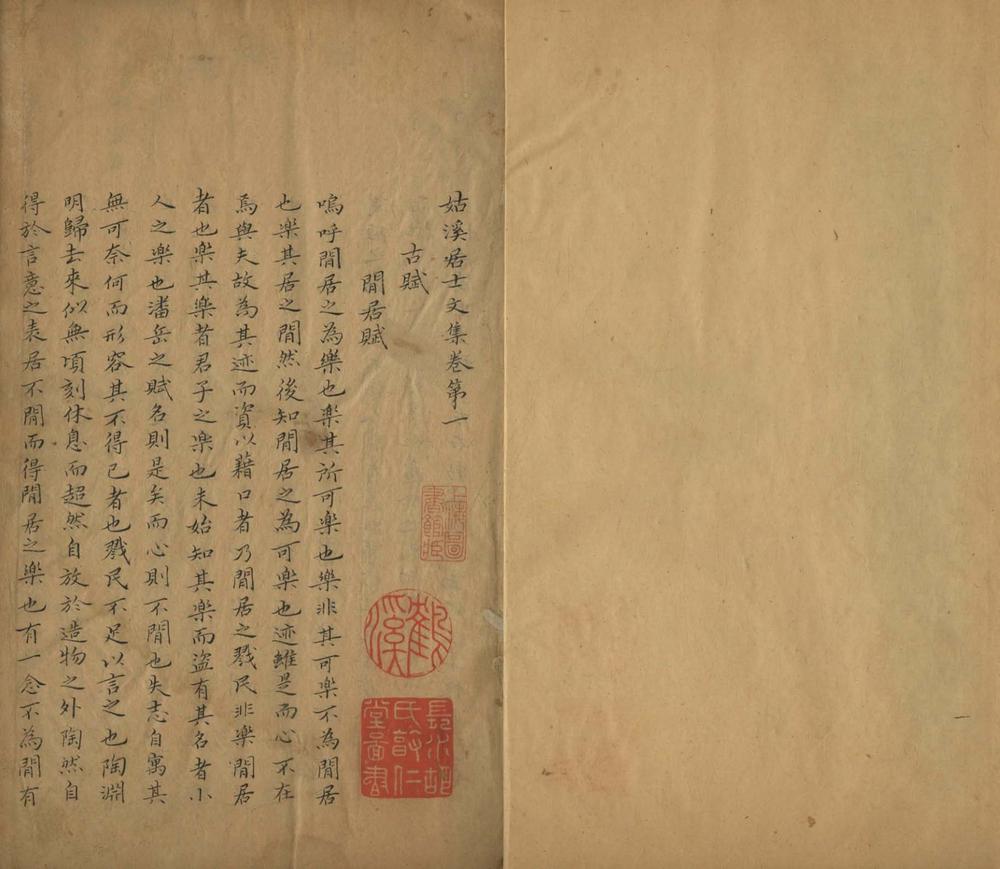 姑溪居士文集卷第一
古賦
閒居賦
嗚呼閒居之為樂也楽其所可楽也樂非其可楽不為閒居
也楽其居之閒然後知閒居之為可楽也迹雖是而心不在
焉與夫故為其迹而資以藉口者乃閒居之戮民非楽閒居
者也楽其楽者君子之楽也未始知其楽而盗有其名者小
人之楽也潘岳之賦名則是矣而心則不閒也失志自寓其
無可奈何而形容其不得已者也戮民不足以言之也陶淵
明歸去來似無頃刻休息而超然自放於造物之外陶然自
得於言意之表居不閒而得閒居之楽也有一念不為閒有
鶴溪
長水胡氏敦仁堂圖書